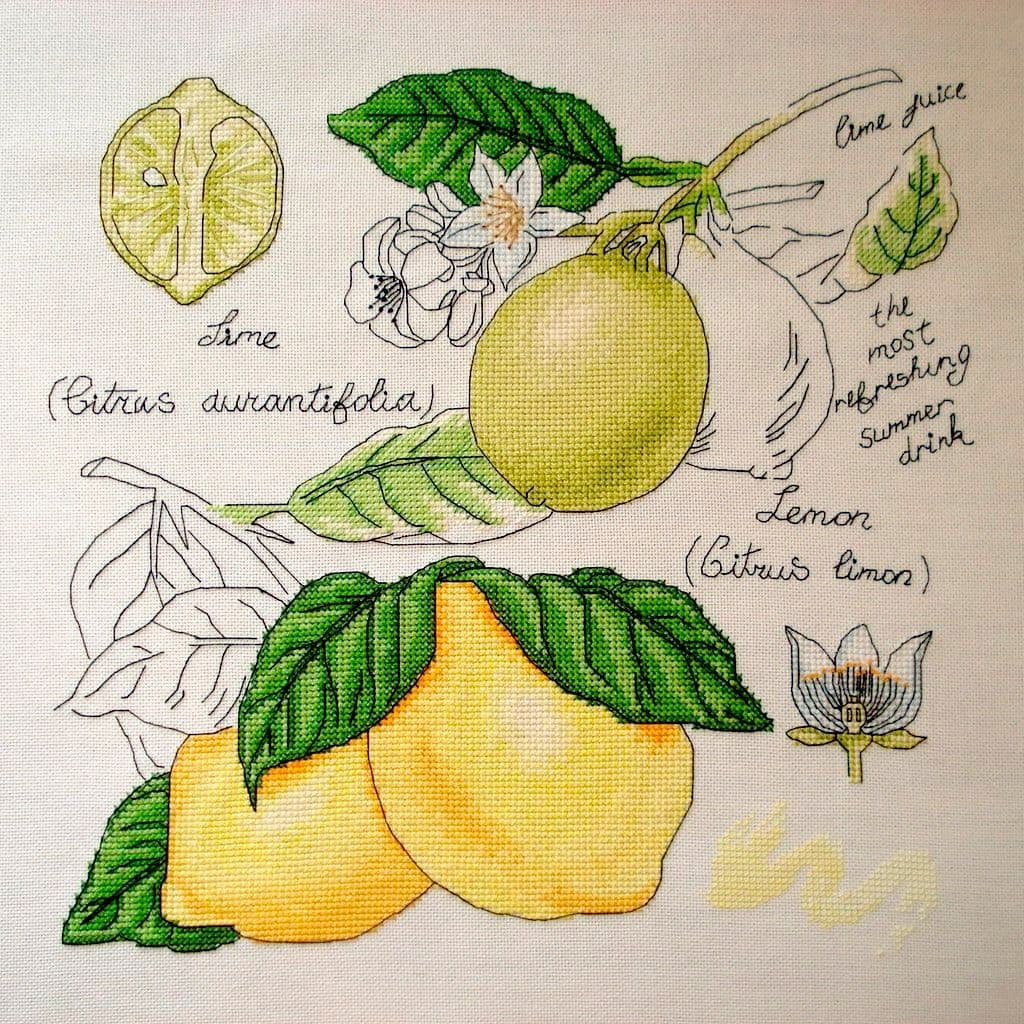 lime juice
Lime
(Citrus aurantifolia)
the
most
refreshing
summer
drink
Lemon
(Citrus limon)